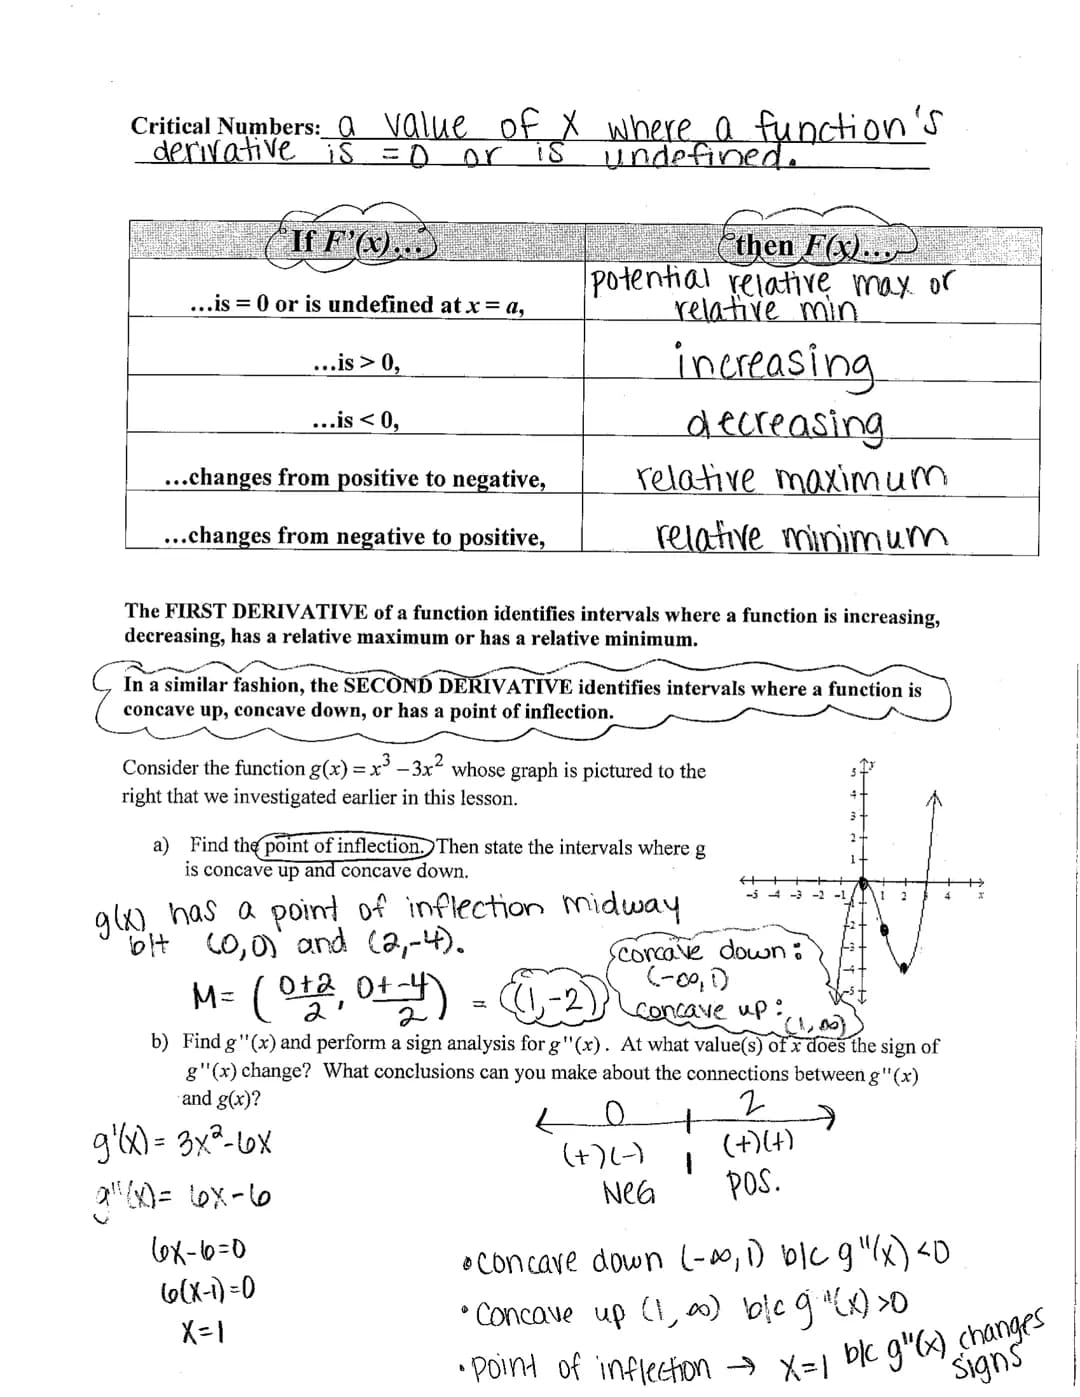 Critical Numbers: a value of x where a function's
derivative is = 0 or is undefined.
If F'(x)...
then F(x)...
...is = 0 or is undefined at x = a,
potential relative max or
relative min
...is > 0,
increasing
...is < 0,
decreasing
...changes from positive to negative,
relative maximum
...changes from negative to positive,
relative minimum
The FIRST DERIVATIVE of a function identifies intervals where a function is increasing,
decreasing, has a relative maximum or has a relative minimum.
In a similar fashion, the SECOND DERIVATIVE identifies intervals where a function is
concave up, concave down, or has a point of inflection.
Consider the function g(x) = x³ – 3x² whose graph is pictured to the
right that we investigated earlier in this lesson.
a) Find the point of inflection. Then state the intervals where g
is concave up and concave down.
g(x) has a point of inflection midway
b/t (0,0) and (2,-4).
M= ( 0+2/2, 0+-4/2 ) = (1,-2)
concave down:
(-∞,1)
concave up:
(1,∞)
y
5
4
3
2
1
-5 -4 -3 -2 -1 1 2 4 x
-2
-3
-4
-5
b) Find g''(x) and perform a sign analysis for g''(x). At what value(s) of x does the sign of
g''(x) change? What conclusions can you make about the connections between g''(x)
and g(x)?
0 2
(+)(-) 1 (+)(+)
NEG POS.
g'(x)= 3x²-6x
g''(x)= 6x-6
6x-6=0
6(x-1)=0
x=1
• concave down (-∞,1) b/c g''(x) <0
• Concave up (1,∞) b/c g''(x) >0
• point of inflection → x=1 b/c g''(x) changes
signs